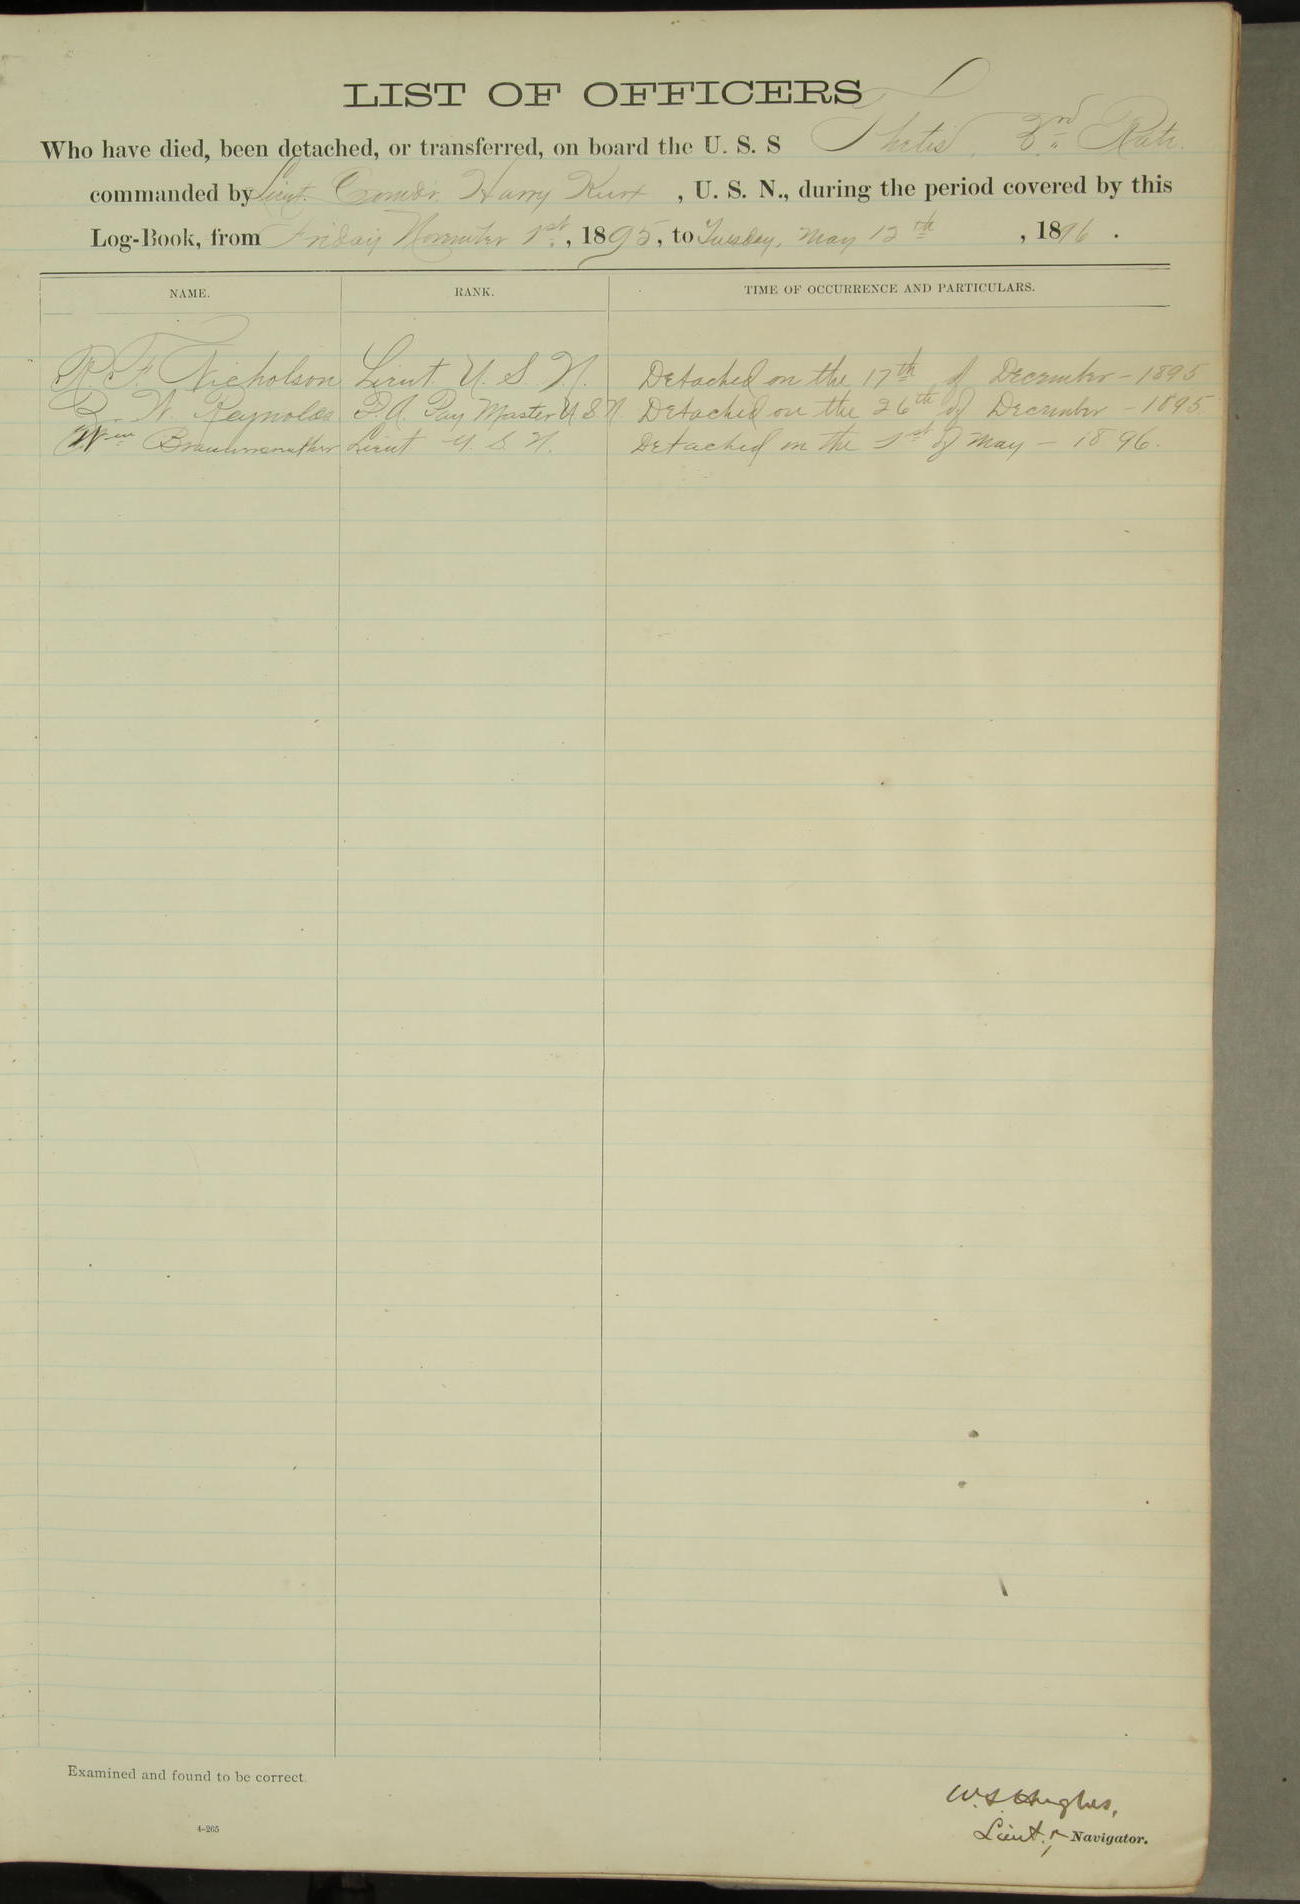 LIST OF OFFICERS
Who have died, been detached, or transferred, on board the U. S. S Thetis, 3rd Rate.
commanded by Lieut. Comdr. Harry Knox, U. S. N., during the period covered by this
Log-Book, from Friday November 1st, 1895, to Tuesday, May 12th, 1896.
NAME. RANK. TIME OF OCCURRENCE AND PARTICULARS.
R. F. Nicholson Lieut U. S. N. Detached on the 17th of December - 1895
W. Reynolds P. A. Pay Master U S N Detached on the 26th of December - 1895
Wm Braunersreuther Lieut U. S. N. Detached on the 1st of May - 1896.
Examined and found to be correct.
4-265
W. S. Hughes,
Lieut., Navigator.